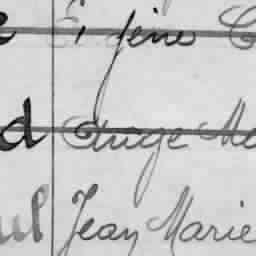 e Eugène C
d Ange Ma
ul Jean Marie